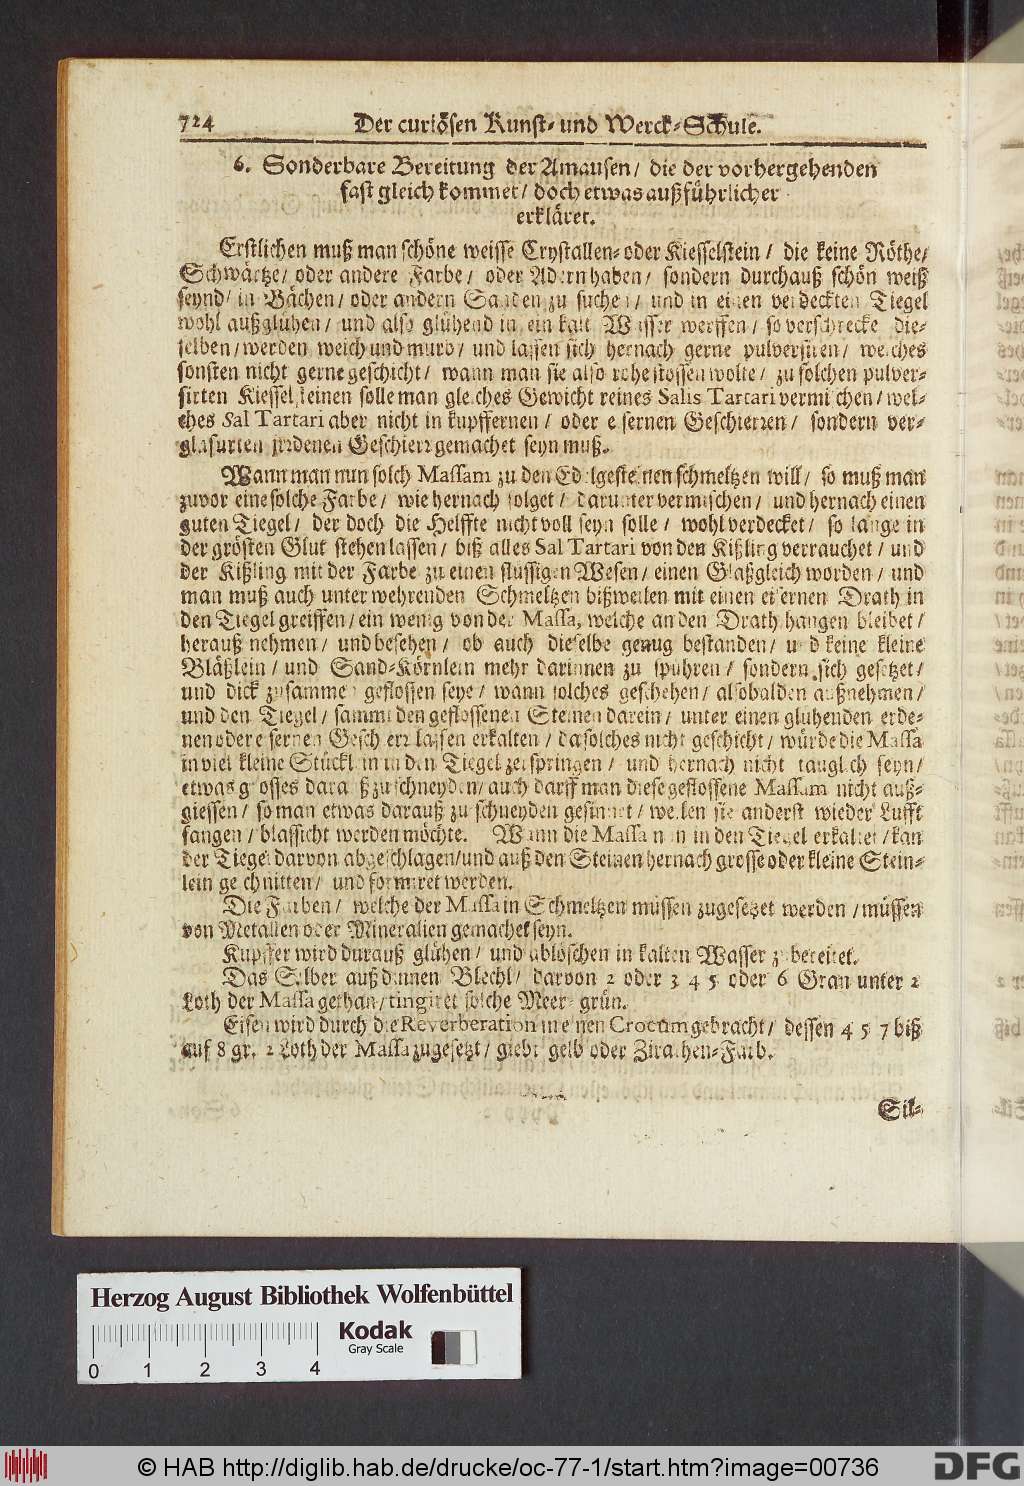 724 Der curiösen Kunst- und Werck-Schule.
6. Sonderbare Bereitung der Amausen / die der vorhergehenden
fast gleich kommet / doch etwas außführlicher
erkläret.
Erstlichen muß man schöne weisse Crystallen- oder Kiesselstein / die keine Röthe /
Schwärtze / oder andere Farbe / oder Adern haben / sondern durchauß schön weiß
seynd / in Bächen / oder andern Sanden zu suchen / und in einen verdeckten Tiegel
wohl außglühen / und also glühend in ein kalt Wasser werffen / so verschrecke die-
selben / werden weich und murb / und lassen sich hernach gerne pulverisiren / welches
sonsten nicht gerne geschicht / wann man sie also rohe stossen wolte / zu solchen pulver-
sirten Kiesselsteinen solle man gleiches Gewicht reines Salis Tartari vermischen / wel-
ches Sal Tartari aber nicht in kupffernen / oder eisernen Geschierren / sondern ver-
glasurten irrdenen Geschierr gemachet seyn muß.
Wann man nun solch Massam zu den Edelgesteinen schmeltzen will / so muß man
zuvor eine solche Farbe / wie hernach folget / darunter vermischen / und hernach einen
guten Tiegel / der doch die Helffte nicht voll seyn solle / wohl verdecket / so lange in
der grösten Glut stehen lassen / biß alles Sal Tartari von den Kißling verrauchet / und
der Kißling mit der Farbe zu einen flüssigen Wesen / einen Glaß gleich worden / und
man muß auch unter wehrenden Schmeltzen bißweilen mit einen eisernen Drath in
den Tiegel greiffen / ein wenig von der Massa, welche an den Drath hangen bleibet /
herauß nehmen / und besehen / ob auch dieselbe genug bestanden / und keine kleine
Bläßlein / und Sand-Körnlein mehr darinnen zu spühren / sondern sich gesetzet /
und dick zusammen geflossen seye / wann solches geschehen / alsobalden außnehmen /
und den Tiegel / sammt den geflossenen Steinen darein / unter einen glühenden erde-
nen oder eisernen Geschierr lassen erkalten / da solches nicht geschicht / würde die Massa
in viel kleine Stücklein in den Tiegel zerspringen / und hernach nicht tauglich seyn /
etwas grosses darauß zu schneyden / auch darff man diese geflossene Massam nicht auß-
giessen / so man etwas darauß zu schneyden gesinnet / weilen sie anderst wieder Lufft
fangen / blassicht werden möchte. Wann die Massa nun in den Tiegel erkaltet / kan
der Tiegel darvon abgeschlagen / und auß den Steinen hernach grosse oder kleine Stein-
lein geschnitten / und formiret werden.
Die Farben / welche der Massa in Schmeltzen müssen zugesetzet werden / müssen
von Metallen oder Mineralien gemachet seyn.
Kupffer wird durauß glühen / und ablöschen in kalten Wasser zubereitet.
Das Silber auß dünnen Blechl / darvon 2 oder 3 4 5 oder 6 Gran unter 2
Loth der Massa gethan / tingiret solche Meer-grün.
Eisen wird durch die Reverberation in einen Crocum gebracht / dessen 4 5 7 biß
auf 8 gr. 2 Loth der Massa zugesetzt / giebt gelb oder Zirathen-Farb.
Sil-
Herzog August Bibliothek Wolfenbüttel
0 1 2 3 4
Kodak
Gray Scale
© HAB http://diglib.hab.de/drucke/oc-77-1/start.htm?image=00736
DFG